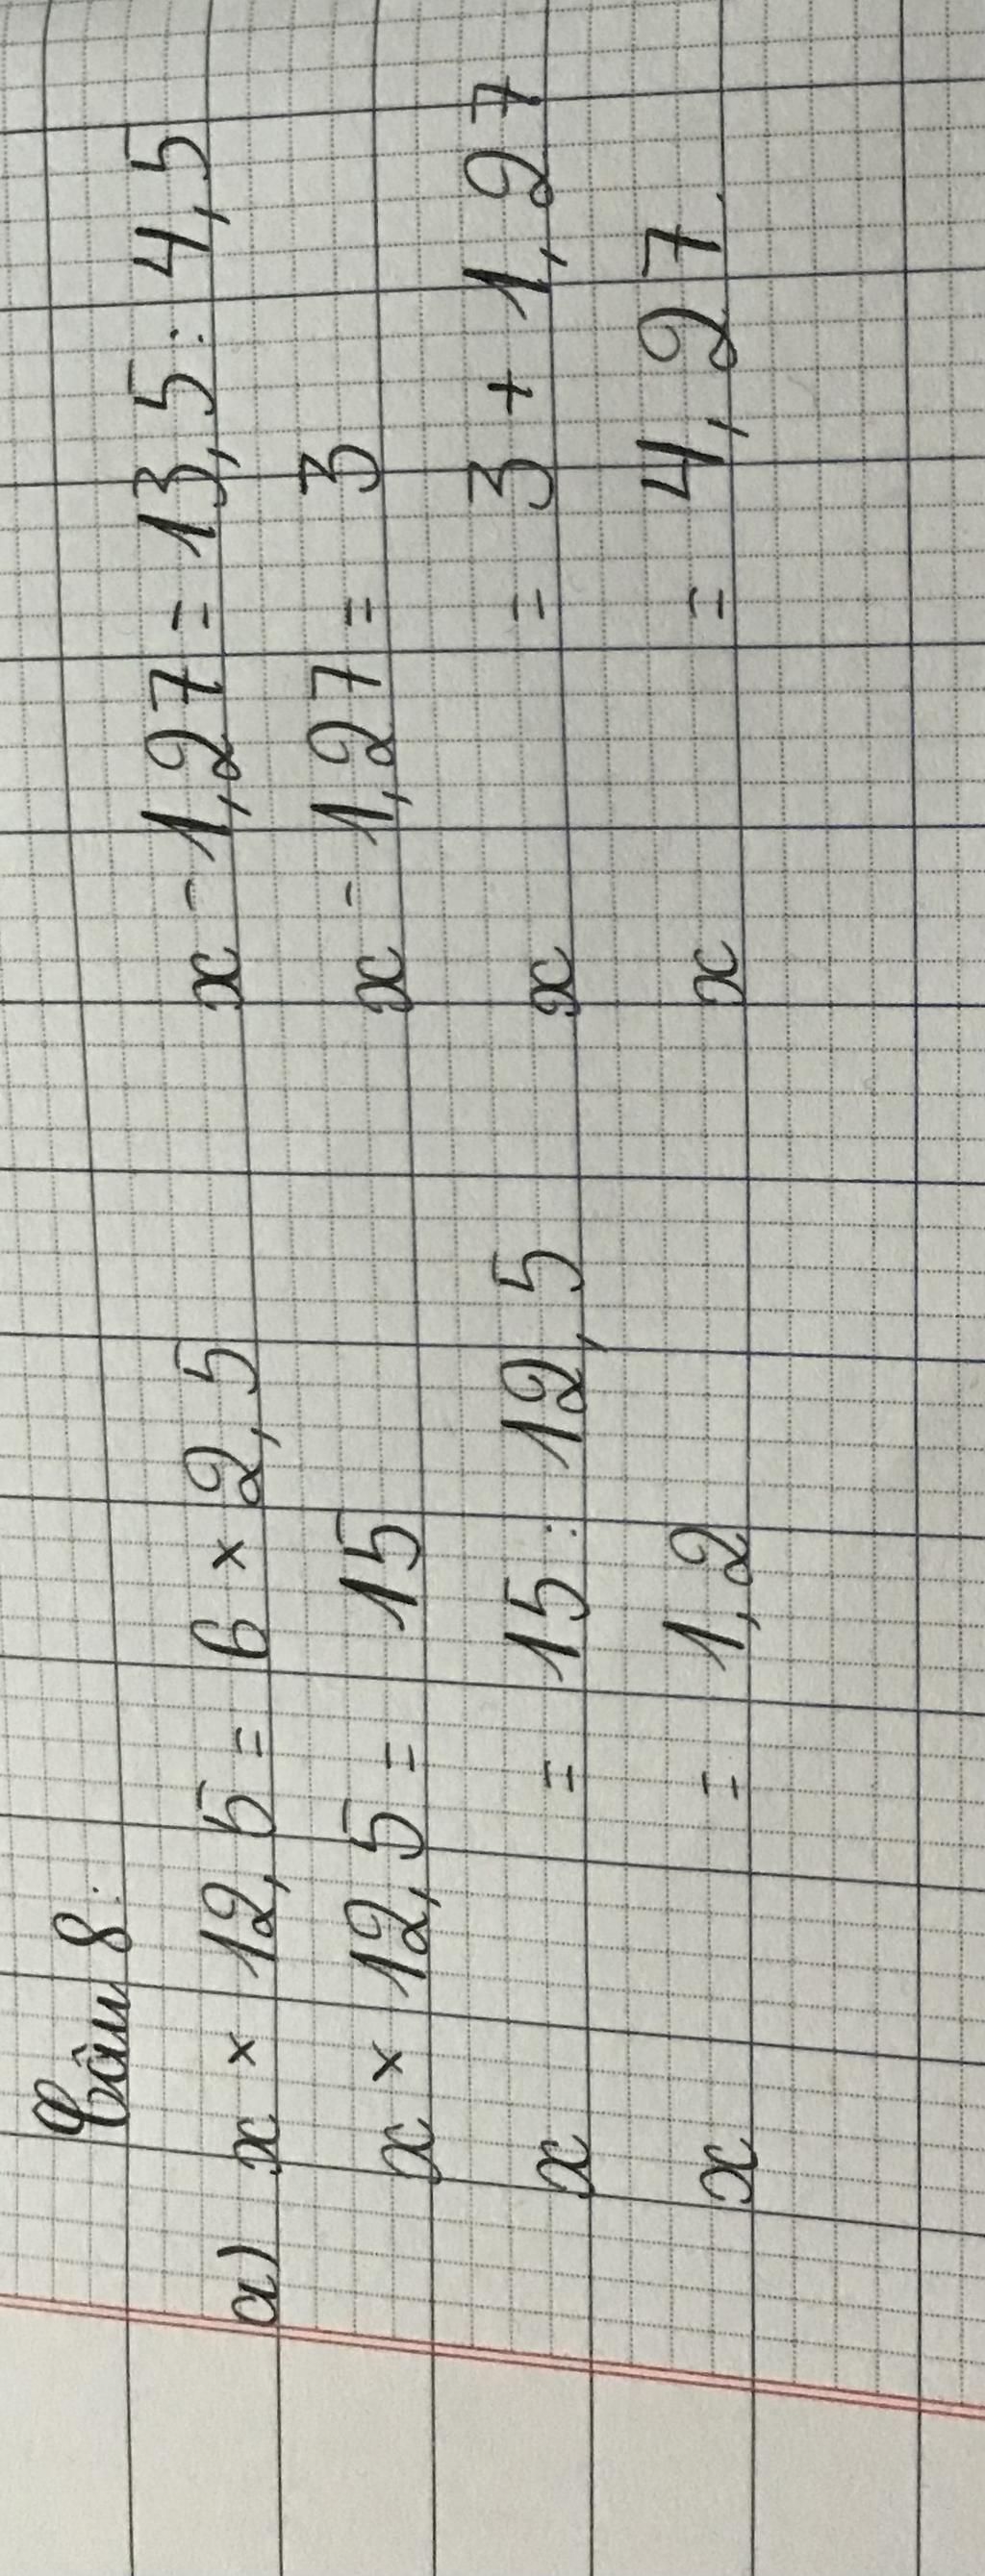 Câu 8:
a) x × 12,5 = 6 × 2,5
x × 12,5 = 15
x = 15 : 12,5
x = 1,2
x - 1,27 = 13,5 : 4,5
x - 1,27 = 3
x = 3 + 1,27
x = 4,27.